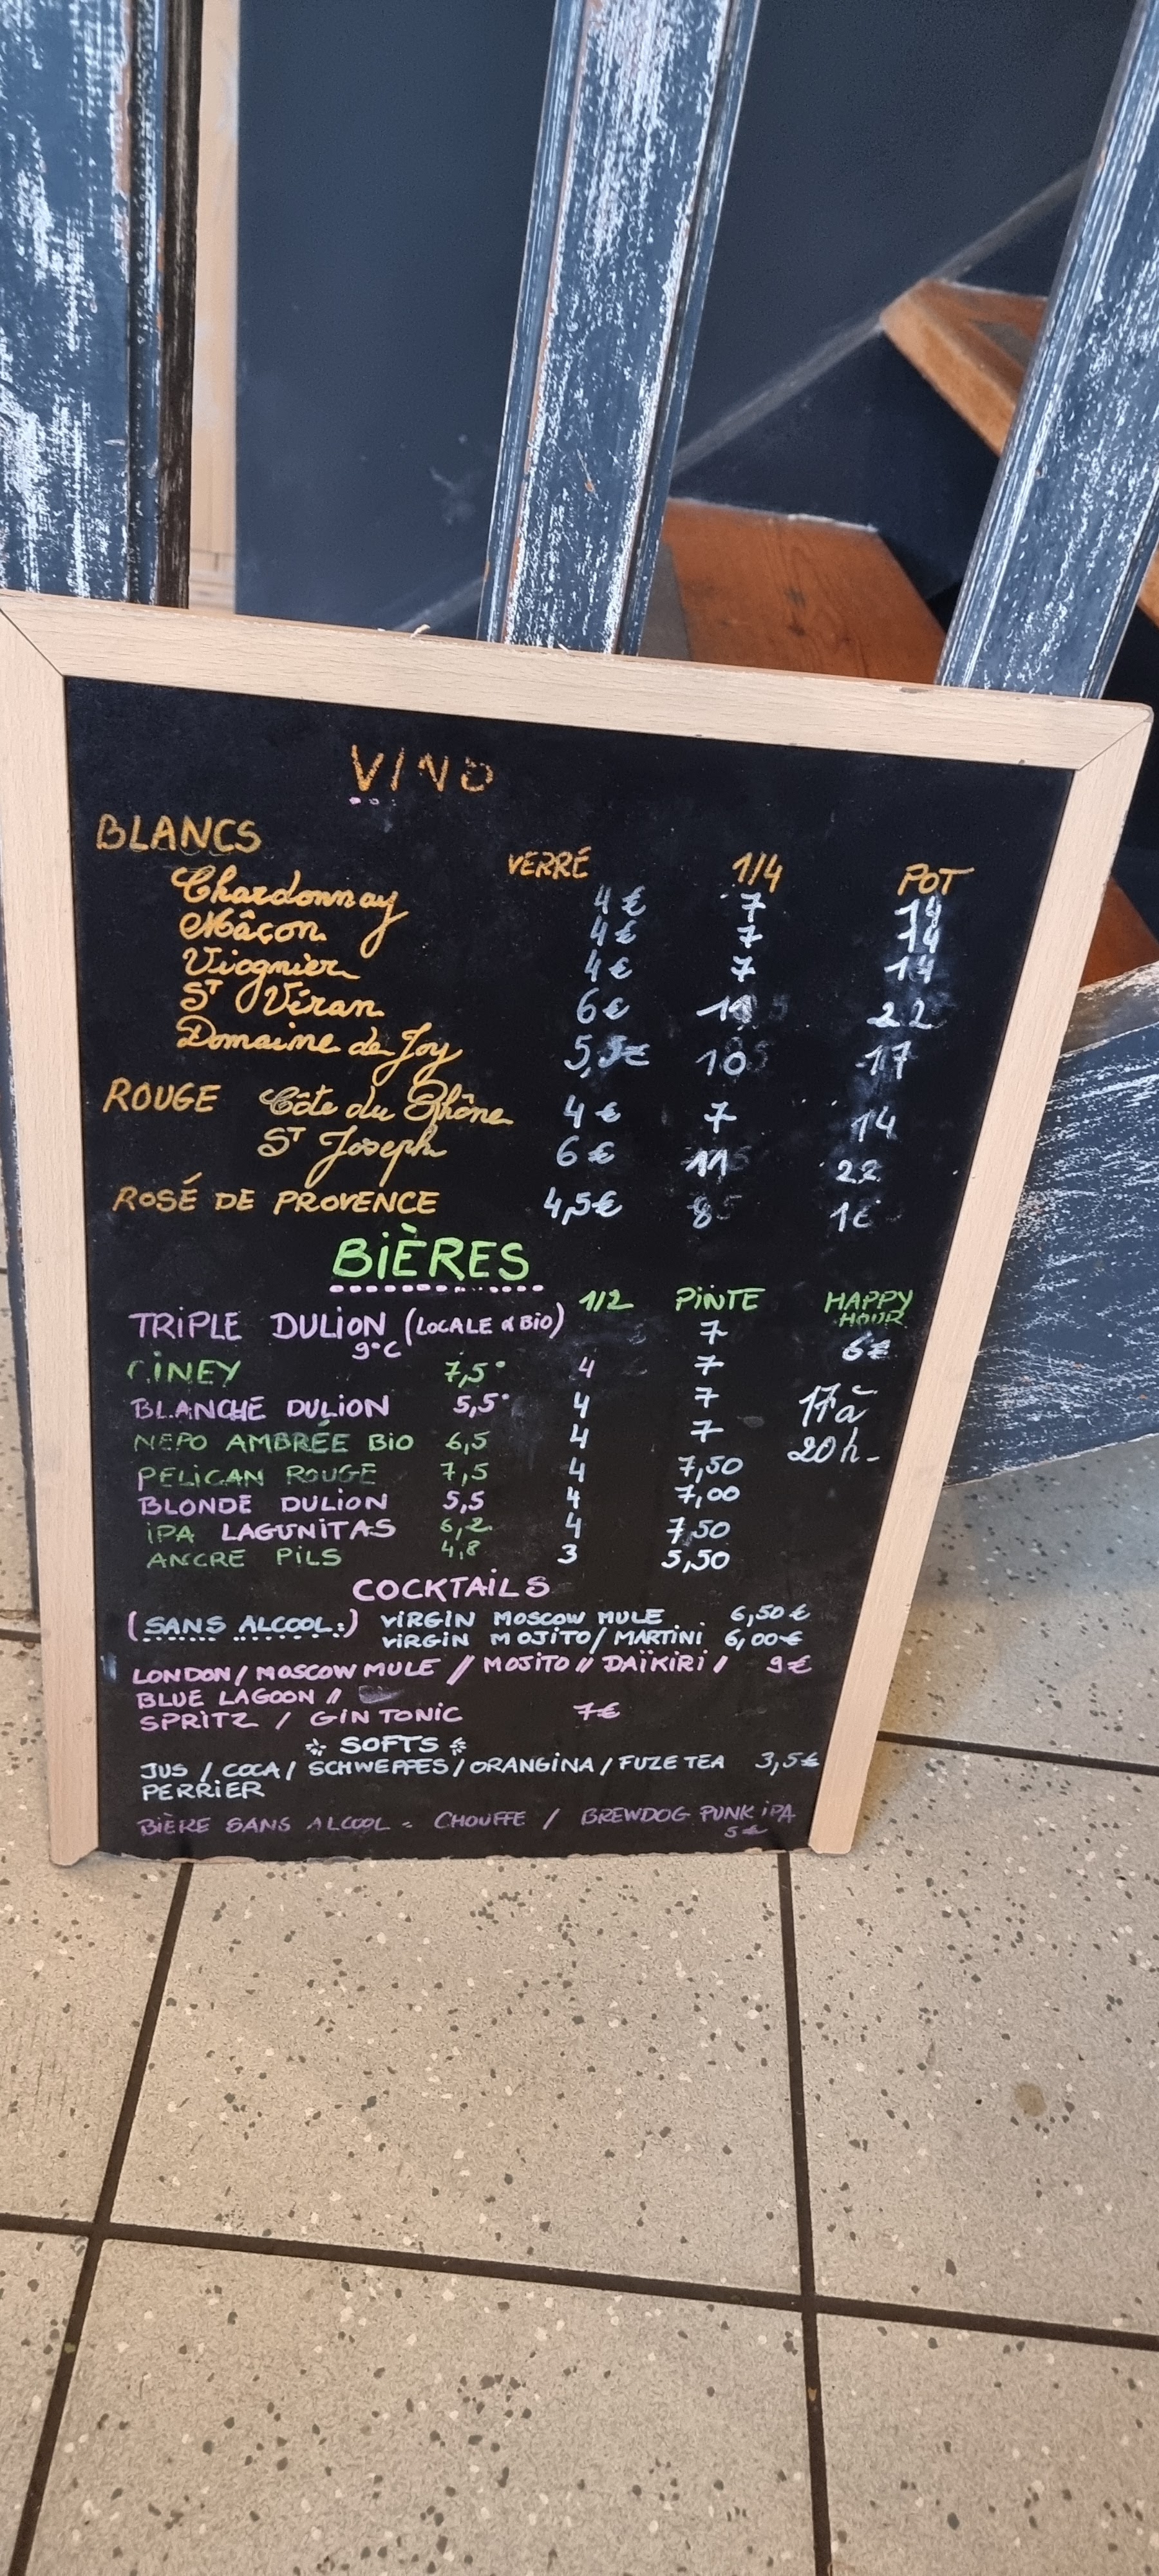 VINO
BLANCS VERRE 1/4 POT
Chardonnay 4€ 7 14
Mâcon 4€ 7 14
Viognier 4€ 7 14
ST Véran 6€ 22
Domaine de Joy 5,5€ 10 17
ROUGE Côte du Rhône 4€ 7 14
ST Joseph 6€ 11 22
ROSÉ DE PROVENCE 4,5€ 8 16
BIÈRES
1/2 PINTE HAPPY HOUR
TRIPLE DULION (LOCALE & BIO) 7 6€
9°C
CINEY 7,5° 4 7
BLANCHE DULION 5,5° 4 7 17 à
NEPO AMBRÉE BIO 6,5 4 7 20h-
PELICAN ROUGE 7,5 4 7,50
BLONDE DULION 5,5 4 7,00
IPA LAGUNITAS 6,2 4 7,50
ANCRE PILS 4,8 3 5,50
COCKTAILS
(SANS ALCOOL:) VIRGIN MOSCOW MULE 6,50€
VIRGIN MOJITO/MARTINI 6,00€
LONDON/MOSCOW MULE // MOJITO // DAÏKIRI / 9€
BLUE LAGOON //
SPRITZ / GIN TONIC 7€
SOFTS
JUS / COCA / SCHWEPPES / ORANGINA / FUZE TEA 3,5€
PERRIER
BIÈRE SANS ALCOOL - CHOUFFE / BREWDOG PUNK IPA
5€